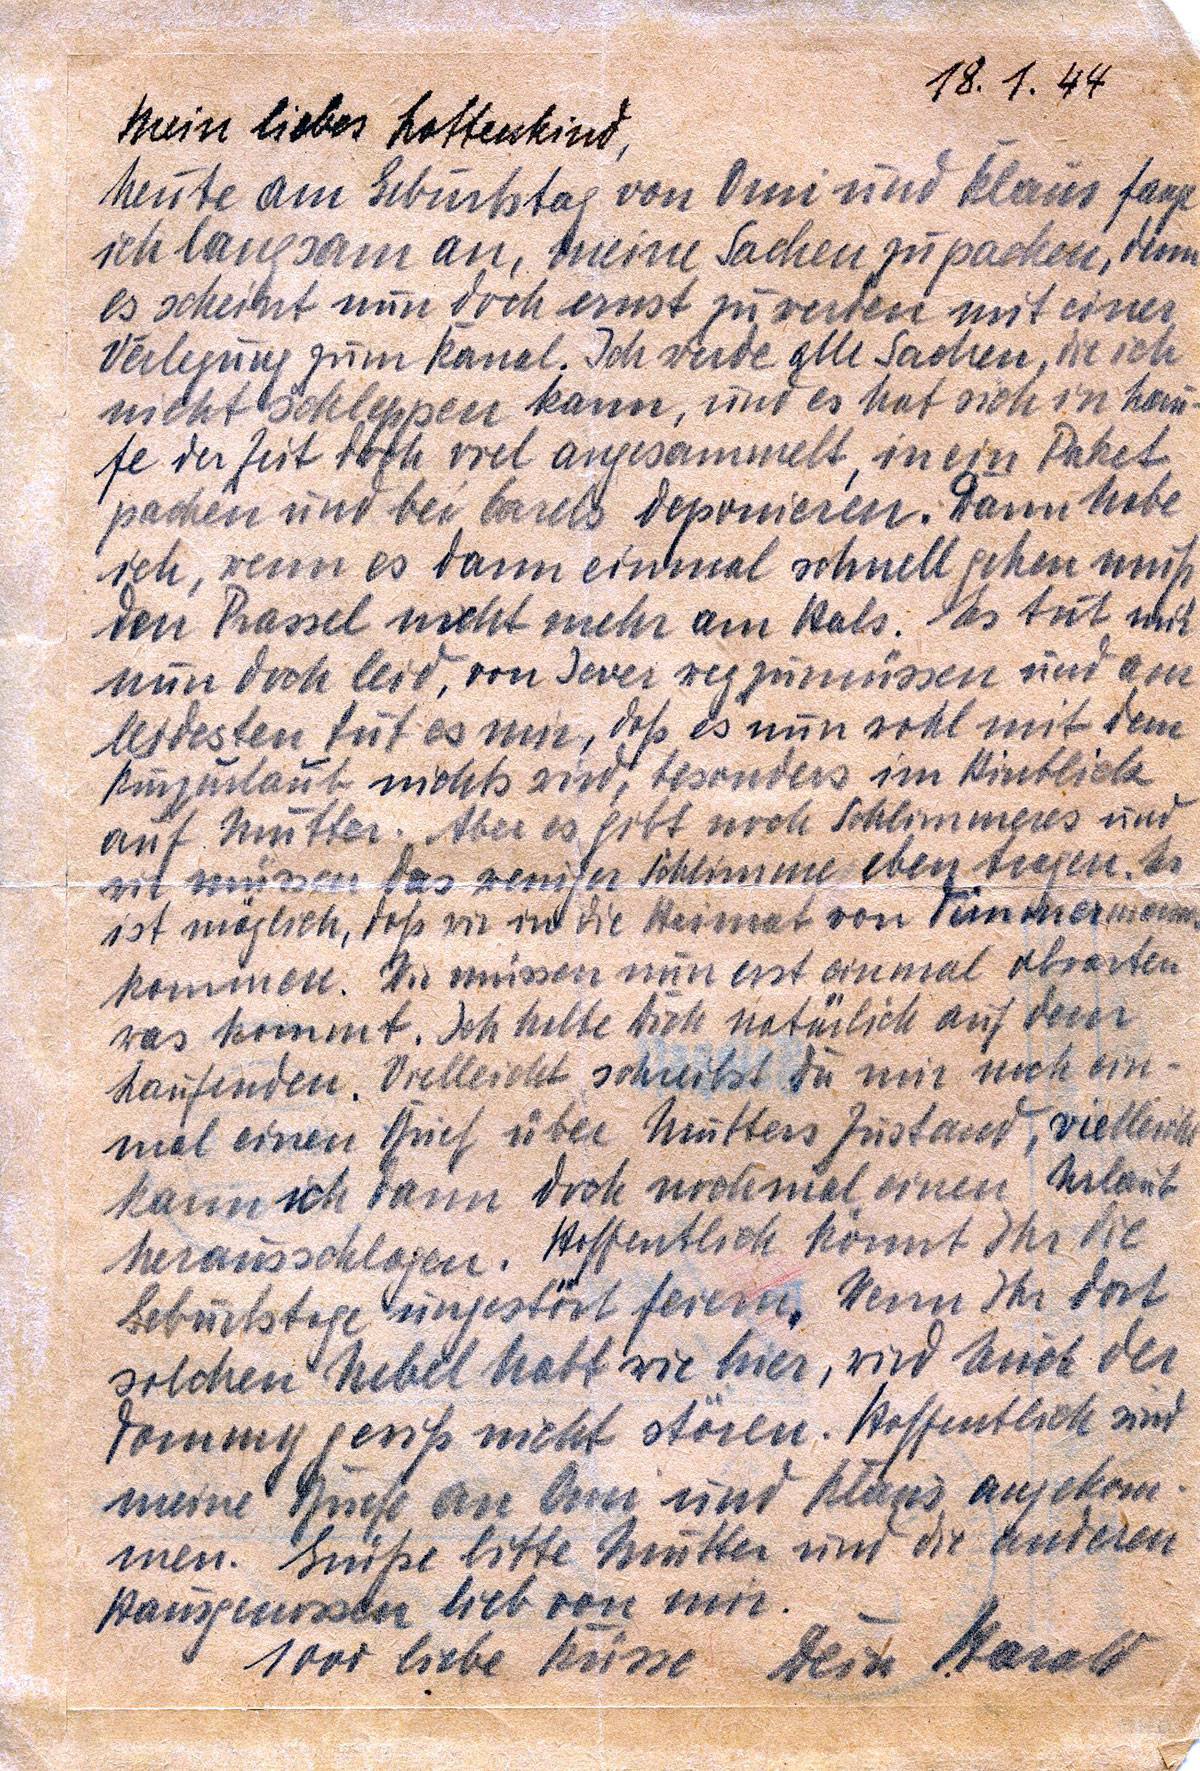 18. 1. 44
Mein liebes Lottenkind,
heute am Geburtstag von Omi und Klaus fange
ich langsam an, meine Sachen zu packen, denn
es scheint nun doch ernst zu werden mit einer
Verlegung zum Kanal. Ich werde alle Sachen, die ich
nicht schleppen kann, und es hat sich im Lau-
fe der Zeit doch viel angesammelt, in ein Paket
packen und bei deponieren. Dann habe
ich, wenn es dann einmal schnell gehen muß
den Prassel nicht mehr am Hals. Es tut mir
nun doch leid, von Jever wegzumüssen und am
leidesten tut es mir, daß es nun wohl mit dem
Kurzurlaub nichts wird, besonders im Hinblick
auf Mutter. Aber es gibt noch Schlimmeres und
wir müssen das weniger Schlimme eben tragen. Es
ist möglich, daß wir in die Heimat von Timmermann
kommen. Wir müssen nun erst einmal abwarten
was kommt. Ich halte Dich natürlich auf dem
Laufenden. Vielleicht schreibst Du mir noch ein-
mal einen Brief über Mutters Zustand, vielleicht
kann ich dann doch nochmal einen Urlaub
herausschlagen. Hoffentlich könnt Ihr die
Geburtstage ungestört feiern. Wenn Ihr dort
solchen Nebel habt wie hier, wird Euch der
Tommy gewiß nicht stören. Hoffentlich sind
meine Briefe an Omi und Klaus angekom-
men. Grüße bitte Mutter und die anderen
Hausgenossen lieb von mir.
1000 liebe Küsse Dein Harald